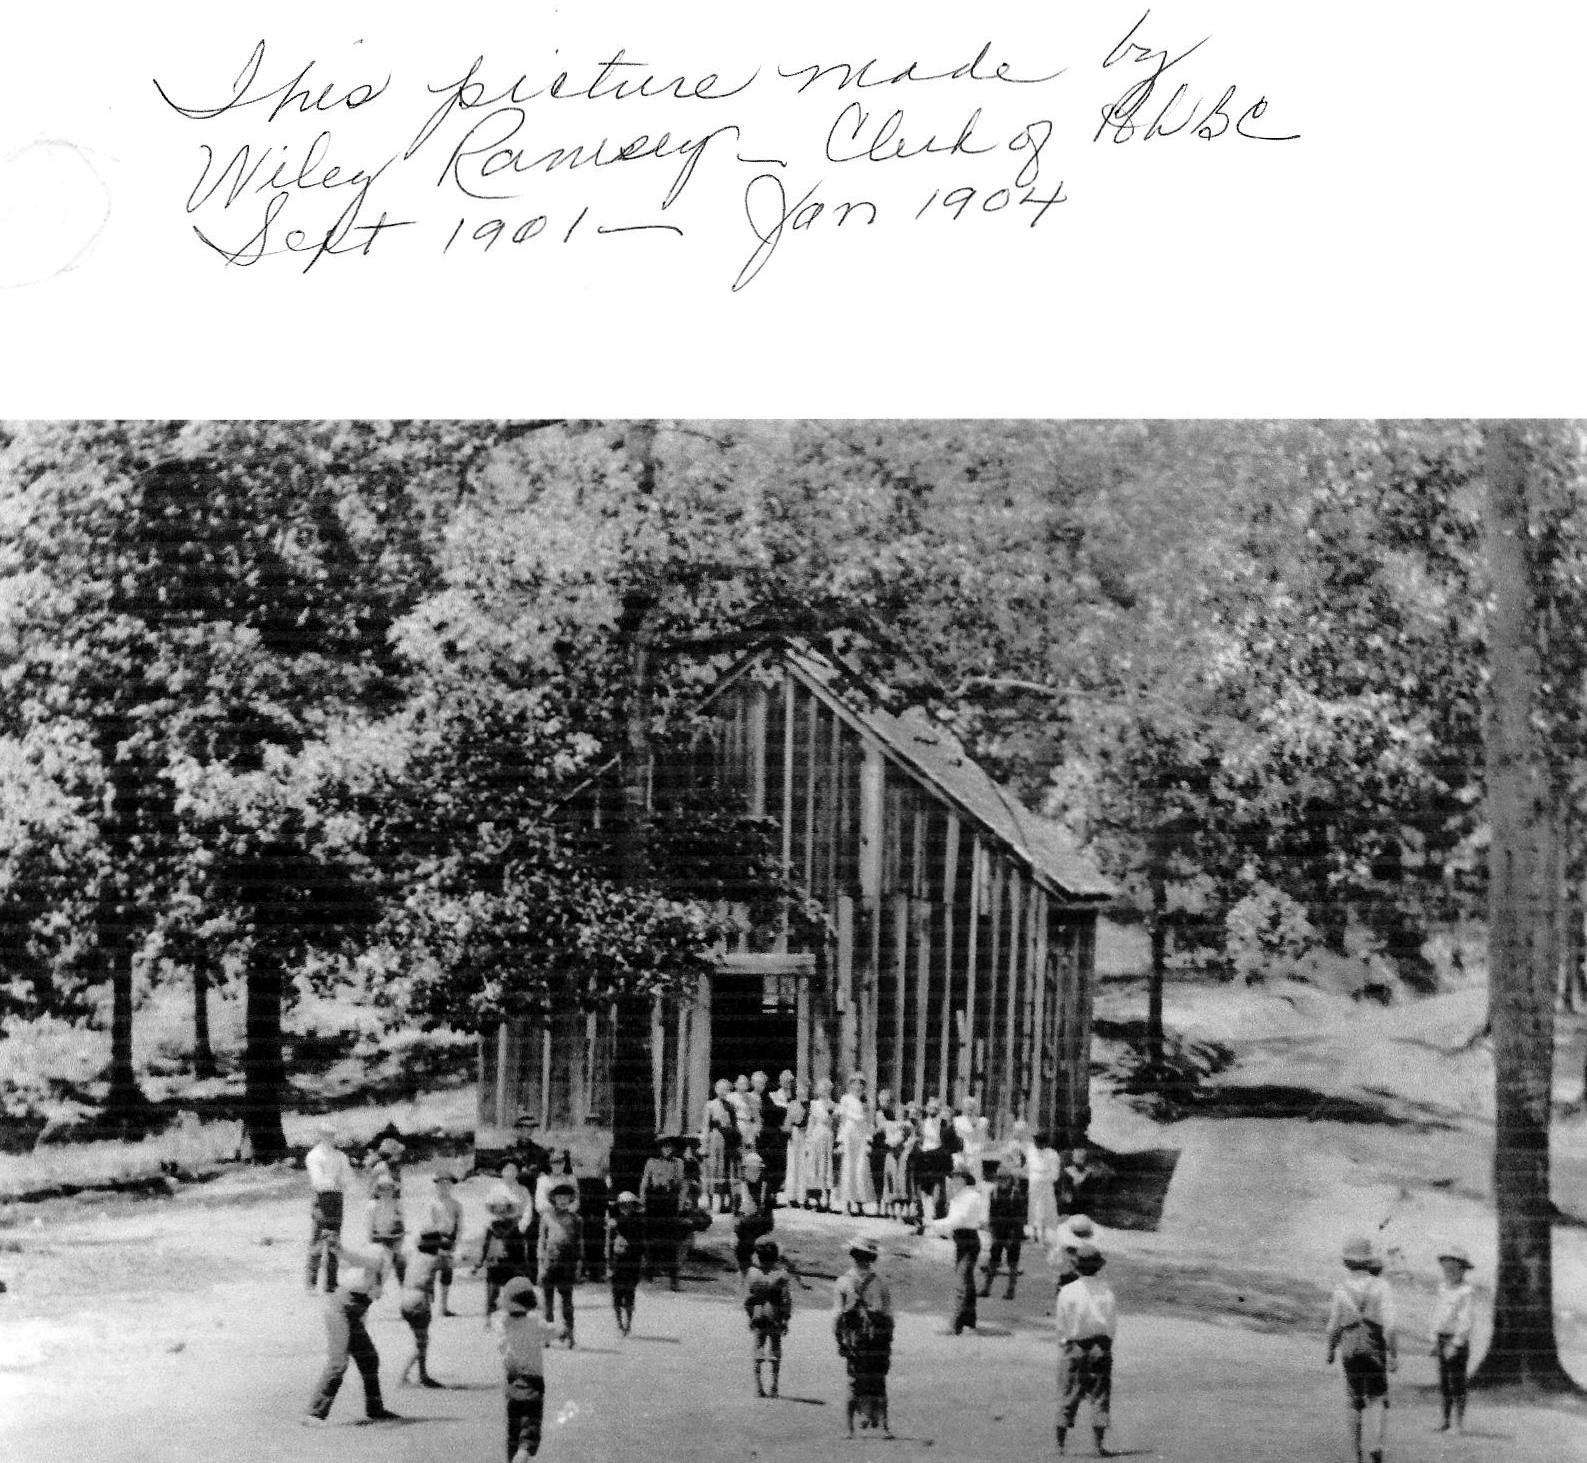 This picture made by
Wiley Ramsey – Clerk of
Sept 1901 — Jan 1904